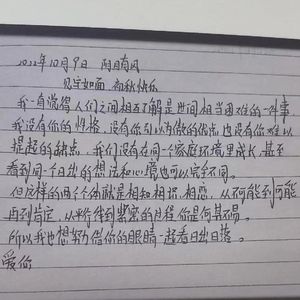 2022年10月9日 阴有风
见字如面 初秋快乐
我一直觉得人们之间相互了解是世间相当困难的一件事
我没有你的性格，没有你引以为傲的优点 也没有你难以
提起的缺点 我们没有在同一个家庭环境里成长，甚至
看到同一个日出的想法和心境也可以完全不同。
但这样的两个个体就是相知相识，相恋，从不可能到可能
再到肯定，从平行线到紧密的过程 你是何其不易。
所以我也想努力借你的眼睛一起看日出日落。
爱你